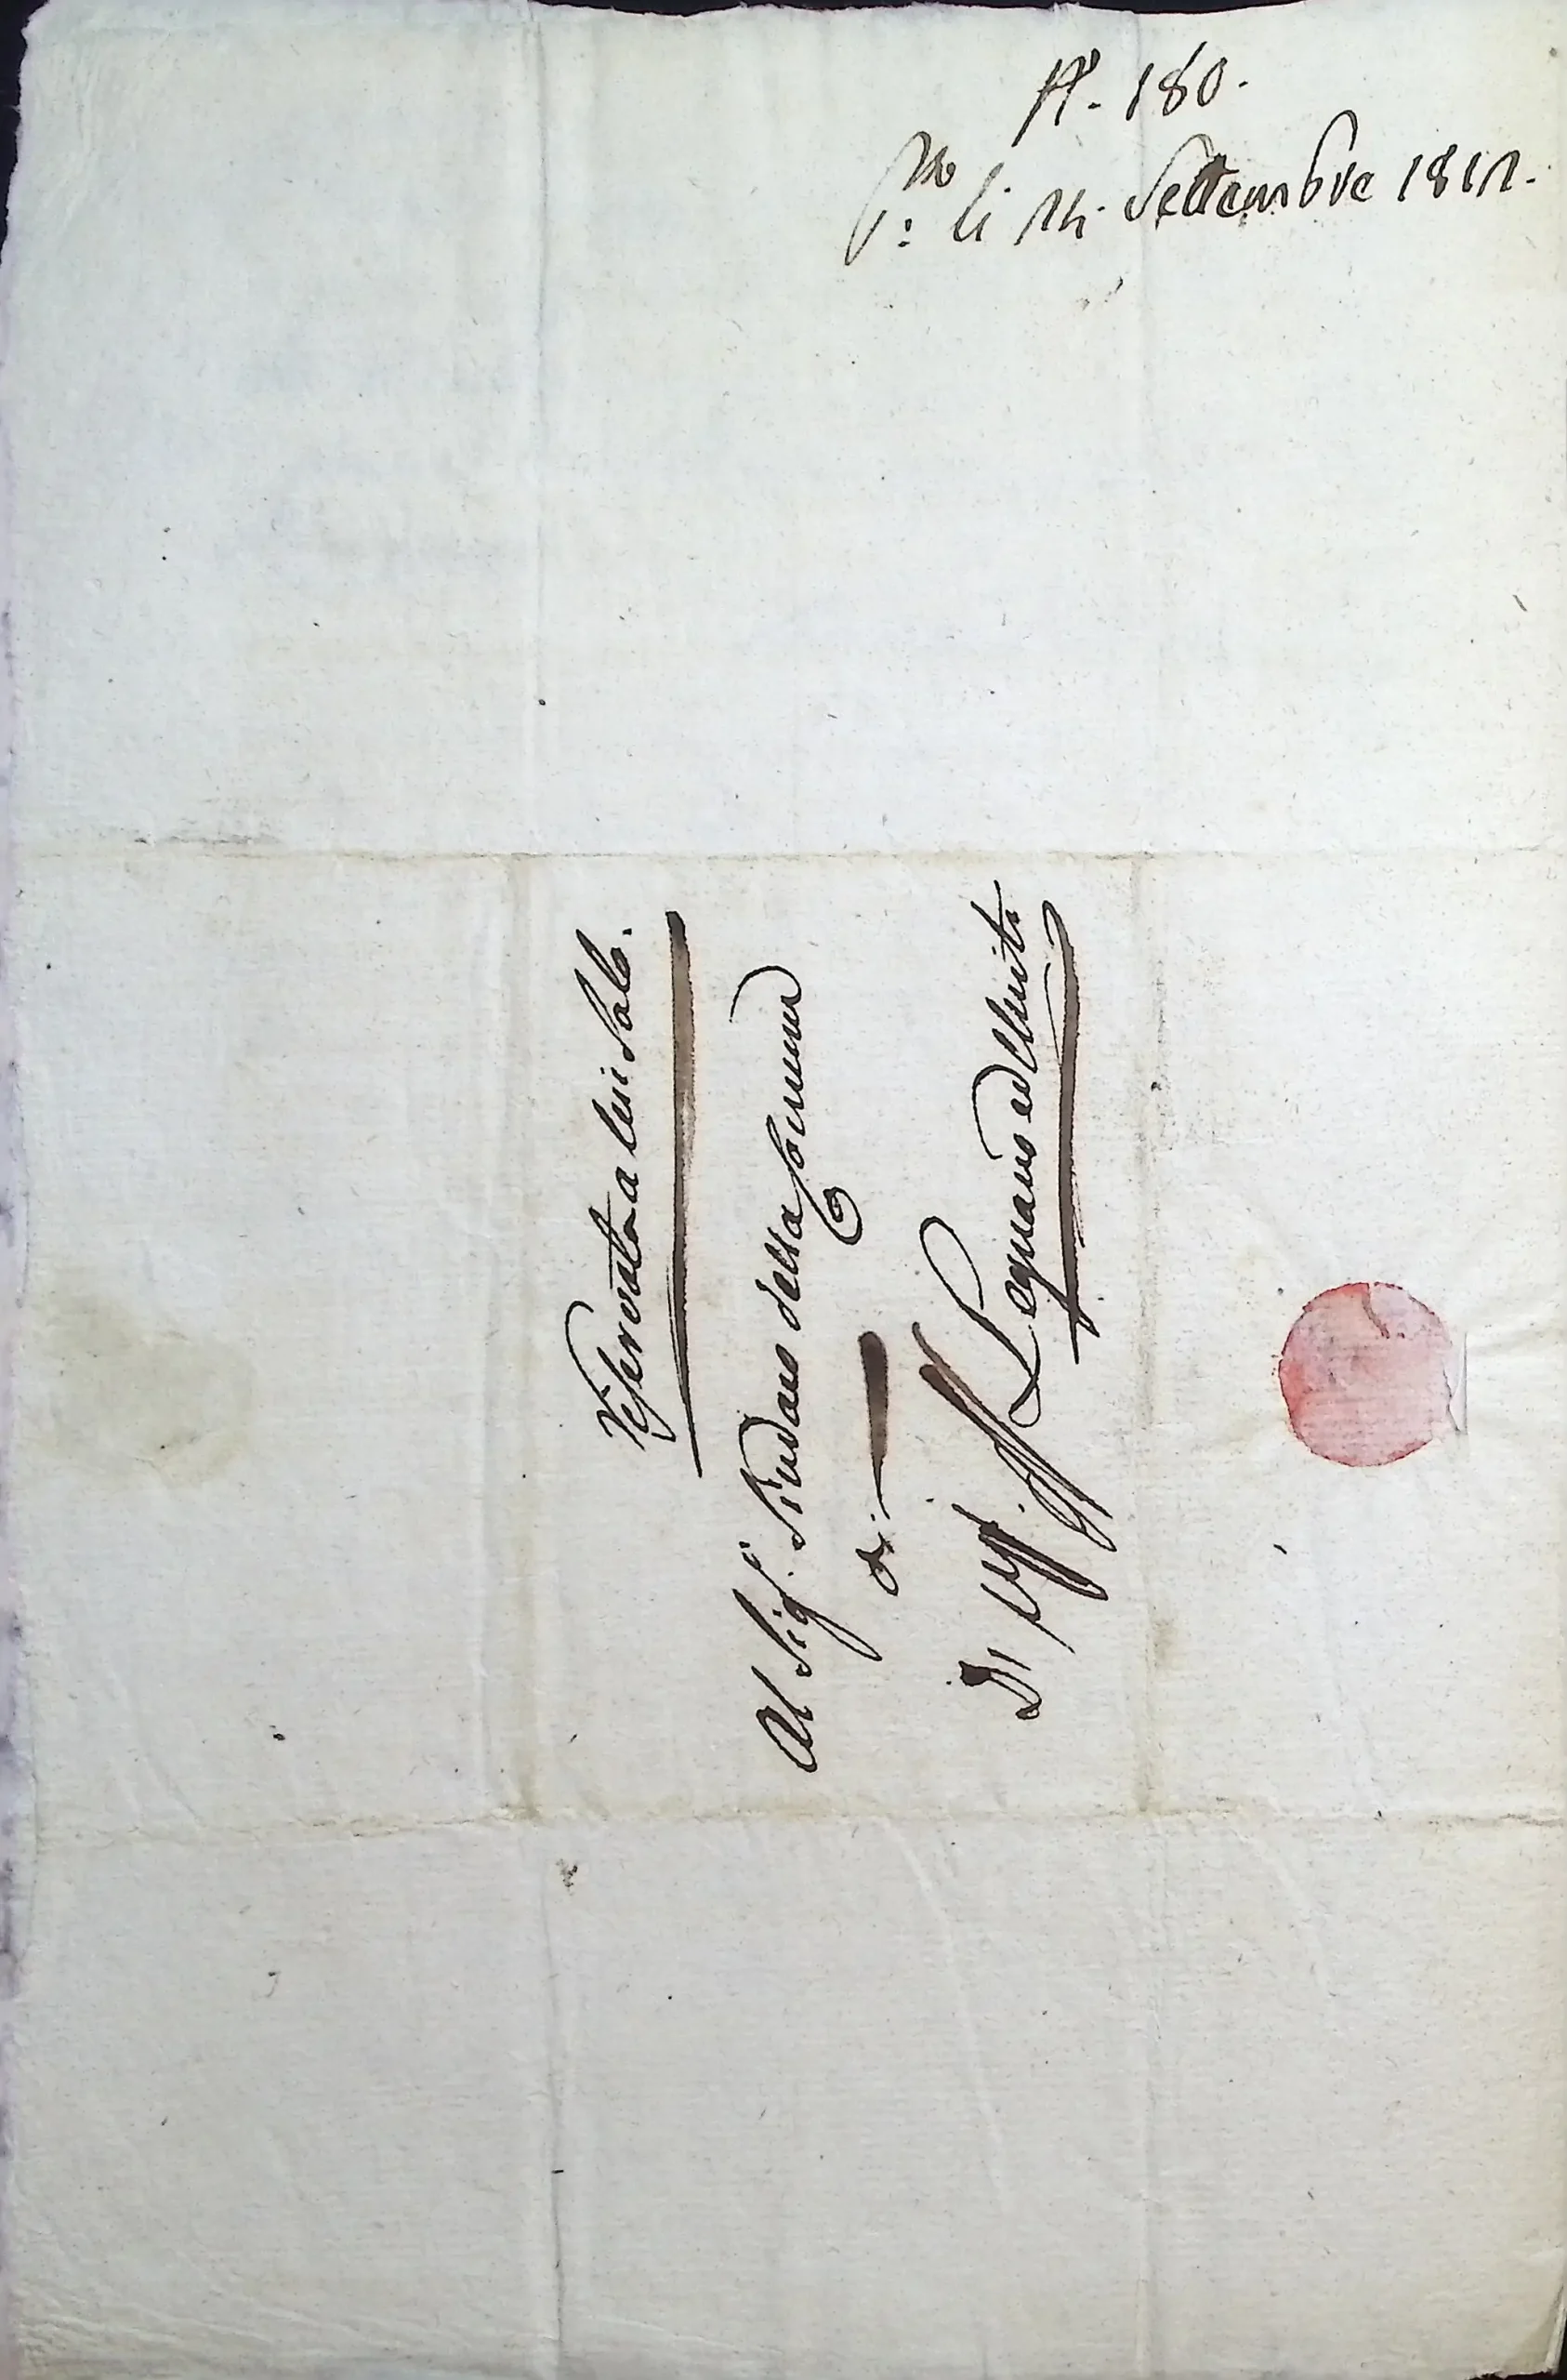 N°. 180.
P.to li 14. Settembre 1812.
Riservata a lui Solo.
Al Sig.r Sindaco della Comune
di
D'Uff.
Legnaro ed Uniti